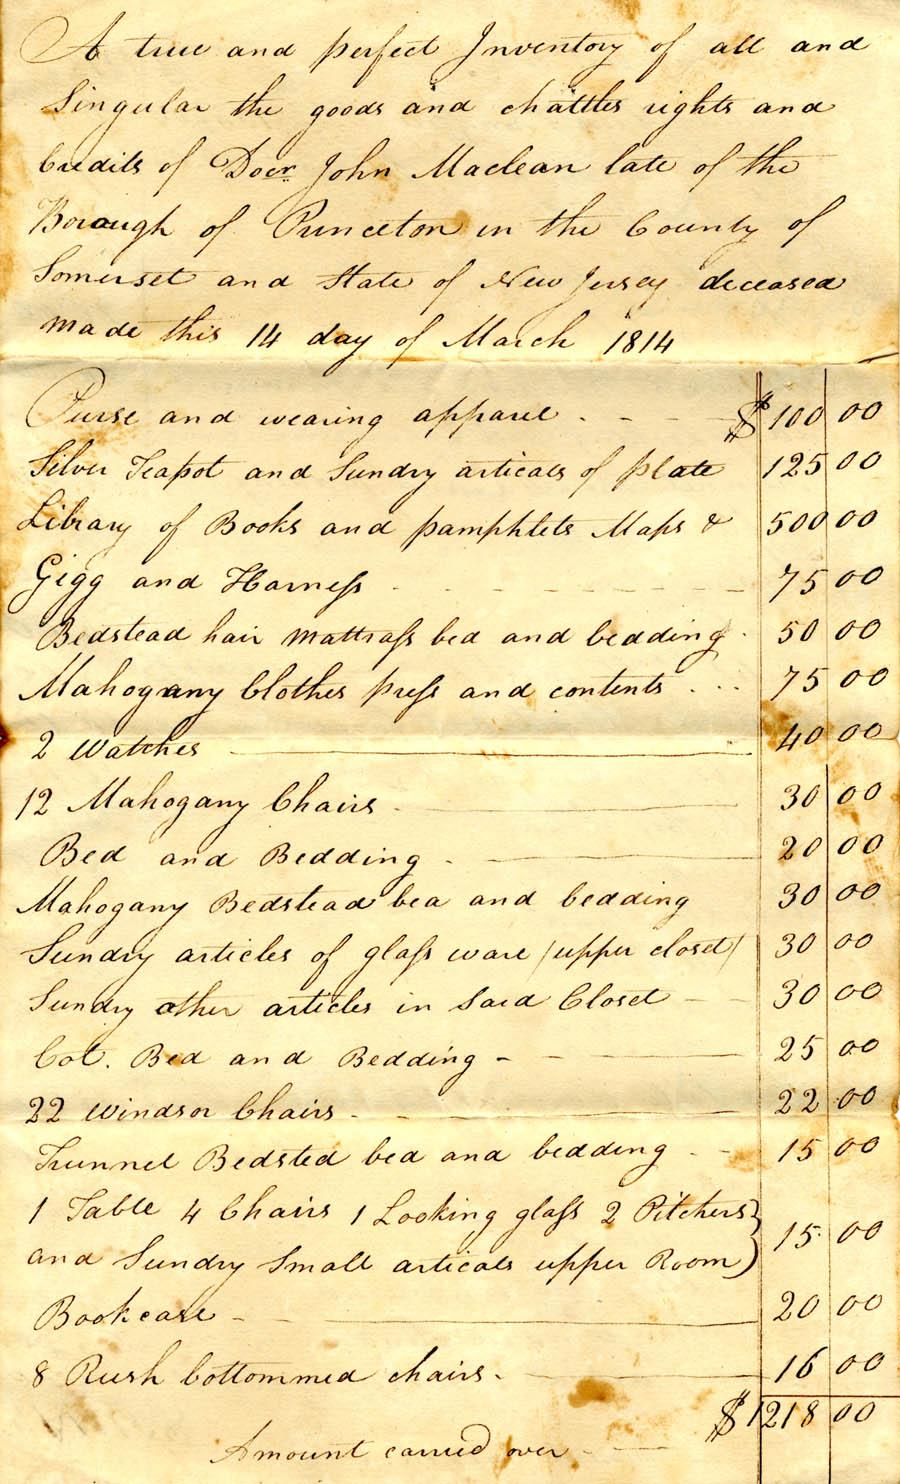 A true and perfect Inventory of all and
Singular the goods and chattles rights and
Credits of Docr. John Maclean late of the
Borough of Princeton in the County of
Somerset and State of New Jersey deceased
made this 14 day of March 1814
Purse and wearing apparel . - - $ 100 00
Silver Teapot and Sundry articals of plate 125 00
Library of Books and pamphlets Maps & 500 00
Gigg and Harness - - - - - 75 00
Bedstead hair mattrass bed and bedding . 50 00
Mahogany Clothes press and contents . . . 75 00
2 Watches 40 00
12 Mahogany Chairs - 30 00
Bed and Bedding - 20 00
Mahogany Bedstead bed and bedding 30 00
Sundry articles of glass ware (upper closet) 30 00
Sundry other articles in Said Closet - 30 00
Cot. Bed and Bedding - - 25 00
22 Windsor Chairs - - 22 00
Trunnel Bedsted bed and bedding - - 15 00
1 Table 4 Chairs 1 Looking glass 2 Pitchers }
and Sundry Small articals upper Room } 15 00
Bookcase - - 20 00
8 Rush bottommed chairs - 16 00
$1218 00
Amount carried over - -